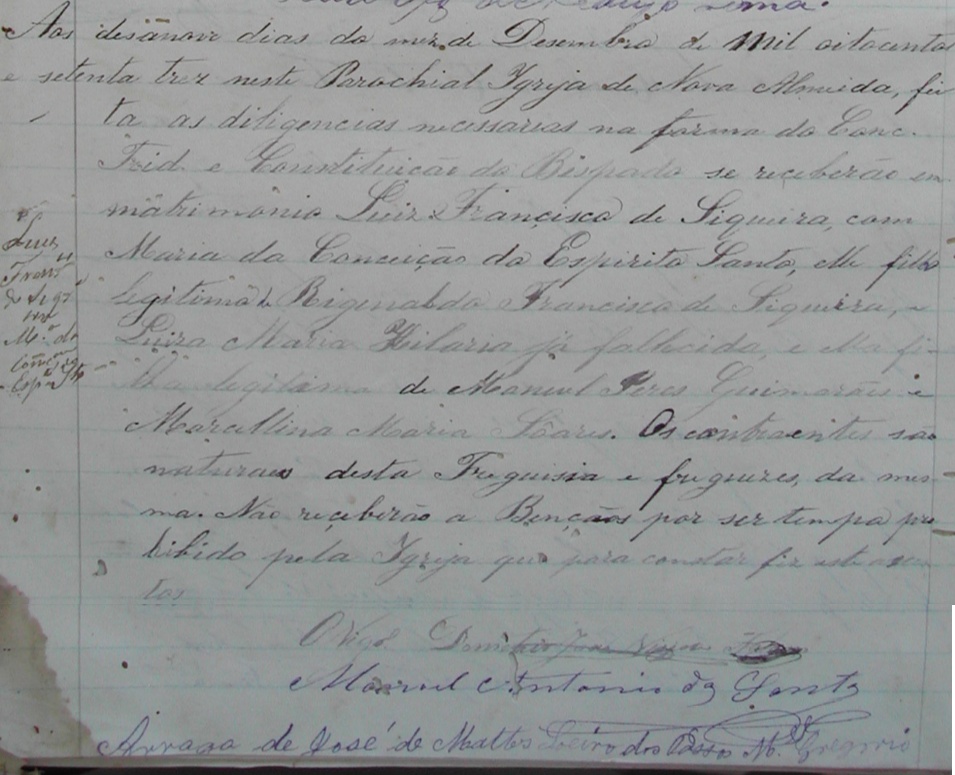 Aos desanove dias do mez de Desembro de Mil oitocentos
e setenta trez neste Parochial Ygreja de Nova Almeida, fei
ta as diligencias necessarias na forma do Conc.
Trid. e Constituição do Bispado se receberão em
matrimonio Luiz Francisco de Siqueira, com
Maria da Conceição do Espirito Santo, elle filho
legitimo Francisco de Siqueira,
Luiza Maria Hilaria já fallecida e ella fi-
lha legitima de Manuel Guimarães e
Marcellina Maria Soares. Os contraentes são
naturaes desta Freguisia e freguezes, da mes
ma. Não receberão a Bençãos por ser tempo pro
hibido pela Ygreja que para constar fiz este assen
tos
Luiz
Franc
M.ª da
O Vigrº
Manoel Antonio da
Arraga de José de Mattos dos Gregorio